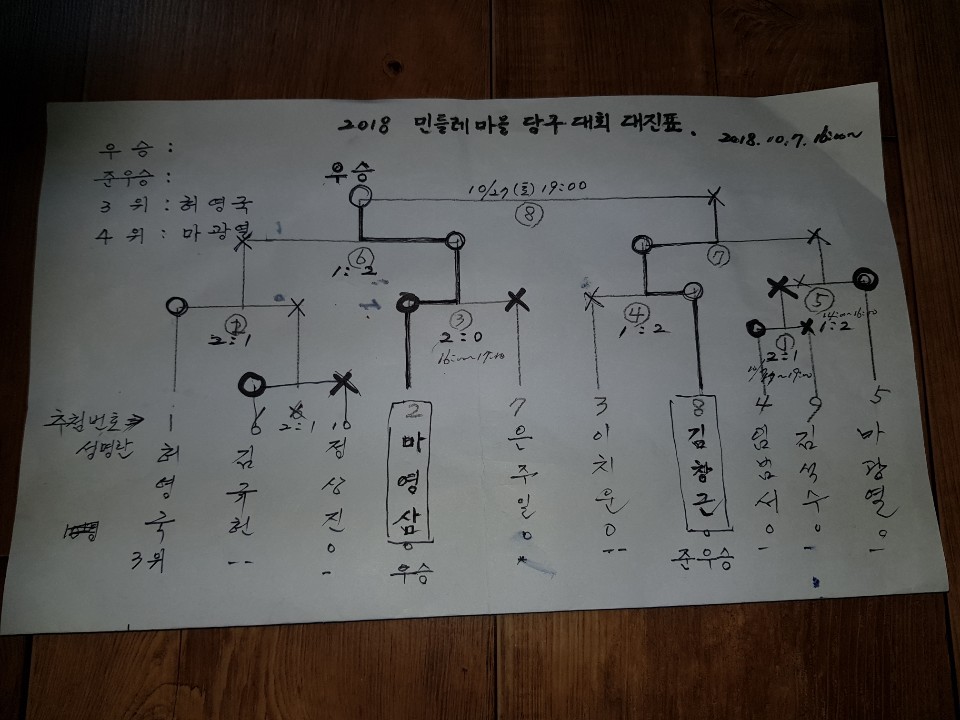 2018 민들레마을 당구대회 대진표.
2018.10.7. 16:00~
우 승 :
준우승 :
3 위 : 허영국
4 위 : 마광열
우승
10/27(토) 19:00
⑧
⑥
1:2
⑦
2:1
③
2:0
16:00~17:00
④
1:2
⑤
14:00~16:00
1:2
①
2:1
2:1
추첨번호→ 1 6 10 2 7 3 8 4 9 5
성명란
허영국
김규헌
정상진
마영삼
은주일
이치운
김창근
엄범서
김석수
마광열
3위
우승
준우승